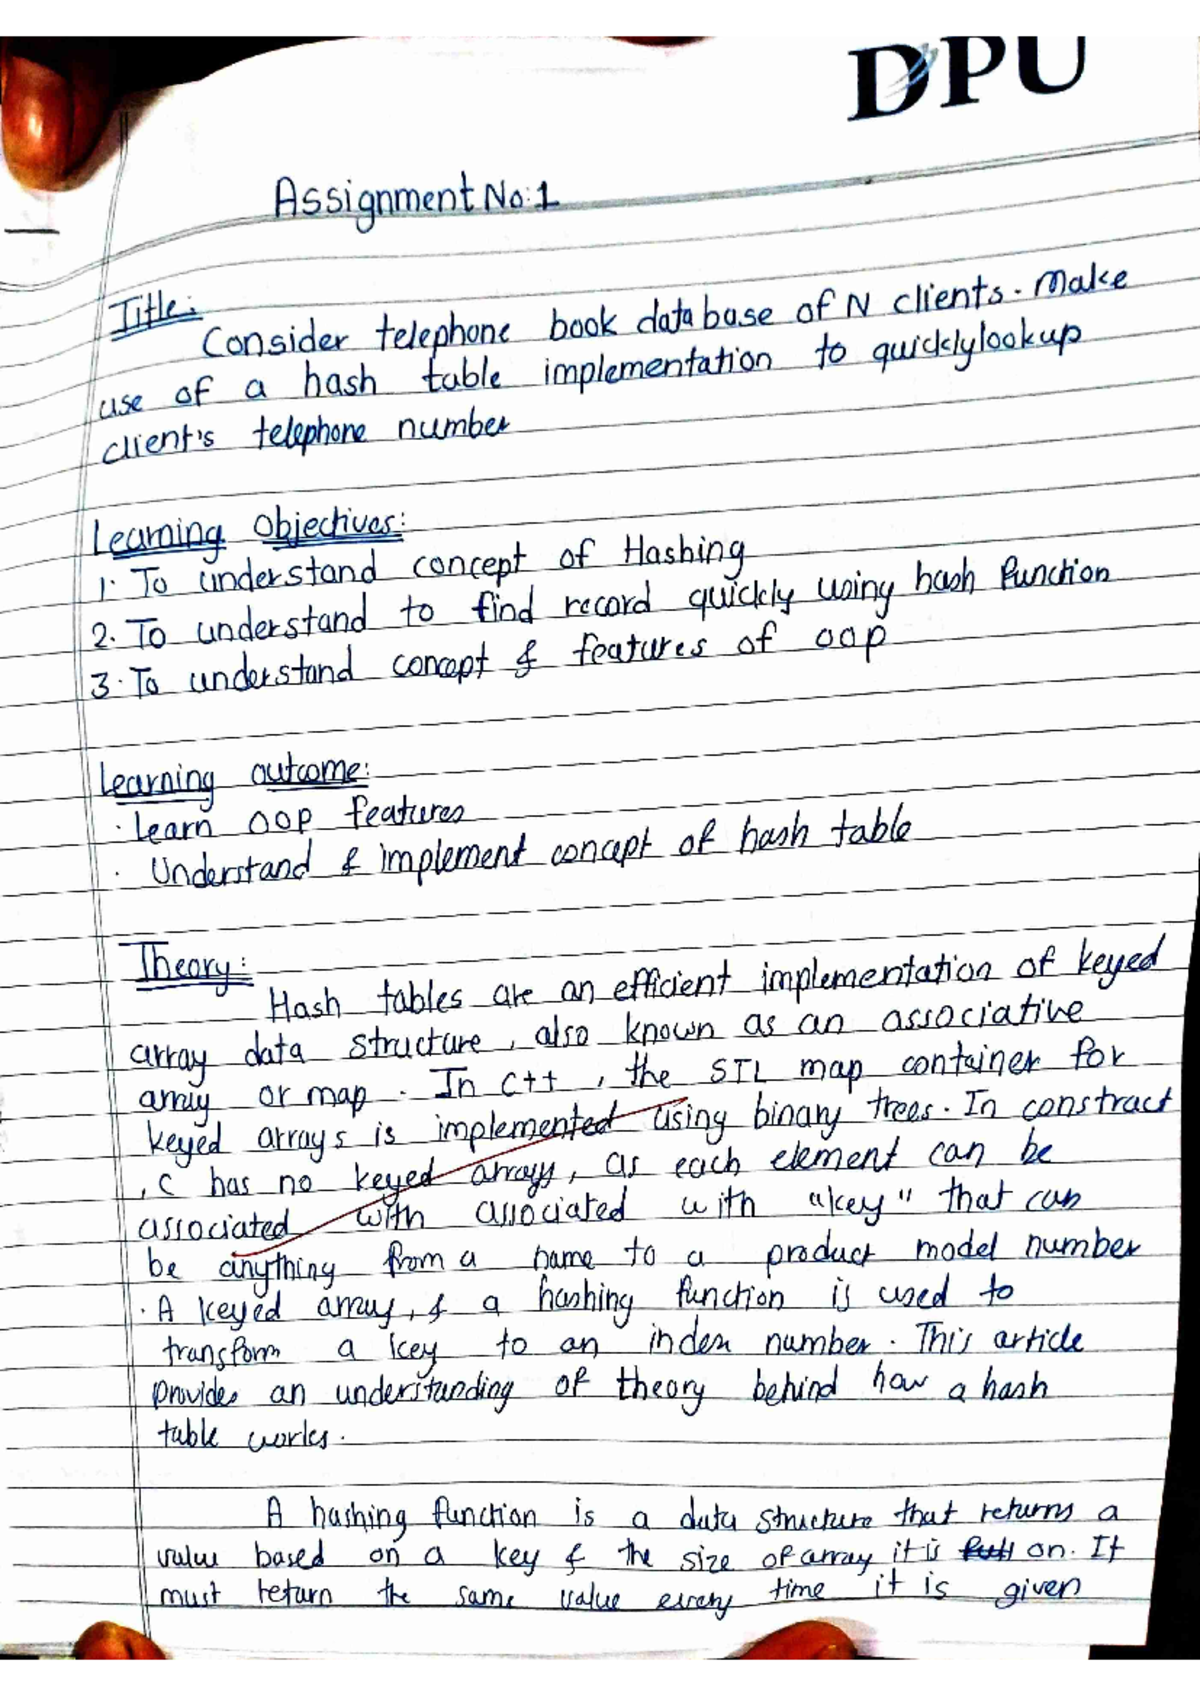 DPU
Assignment No:1
Title:
Consider telephone book database of N clients. Make
use of a hash table implementation to quickly lookup
client's telephone number
Learning Objectives:
1. To understand concept of Hashing
2. To understand to find record quickly using hash function
3. To understand concept & features of oop
Learning outcome:
· Learn OOP features
· Understand & implement concept of hash table
Theory:
Hash tables are an efficient implementation of keyed
array data structure, also known as an associative
array or map. In C++, the STL map container for
keyed arrays is implemented using binary trees. In constract
, C has no keyed arrays, as each element can be
associated with associated with "key" that can
be anything from a name to a product model number
. A keyed array, & a hashing function is used to
transform a key to an index number. This article
provides an understanding of theory behind how a hash
table works.
A hashing function is a data structure that returns a
value based on a key & the size of array it is on. It
must return the same value every time it is given